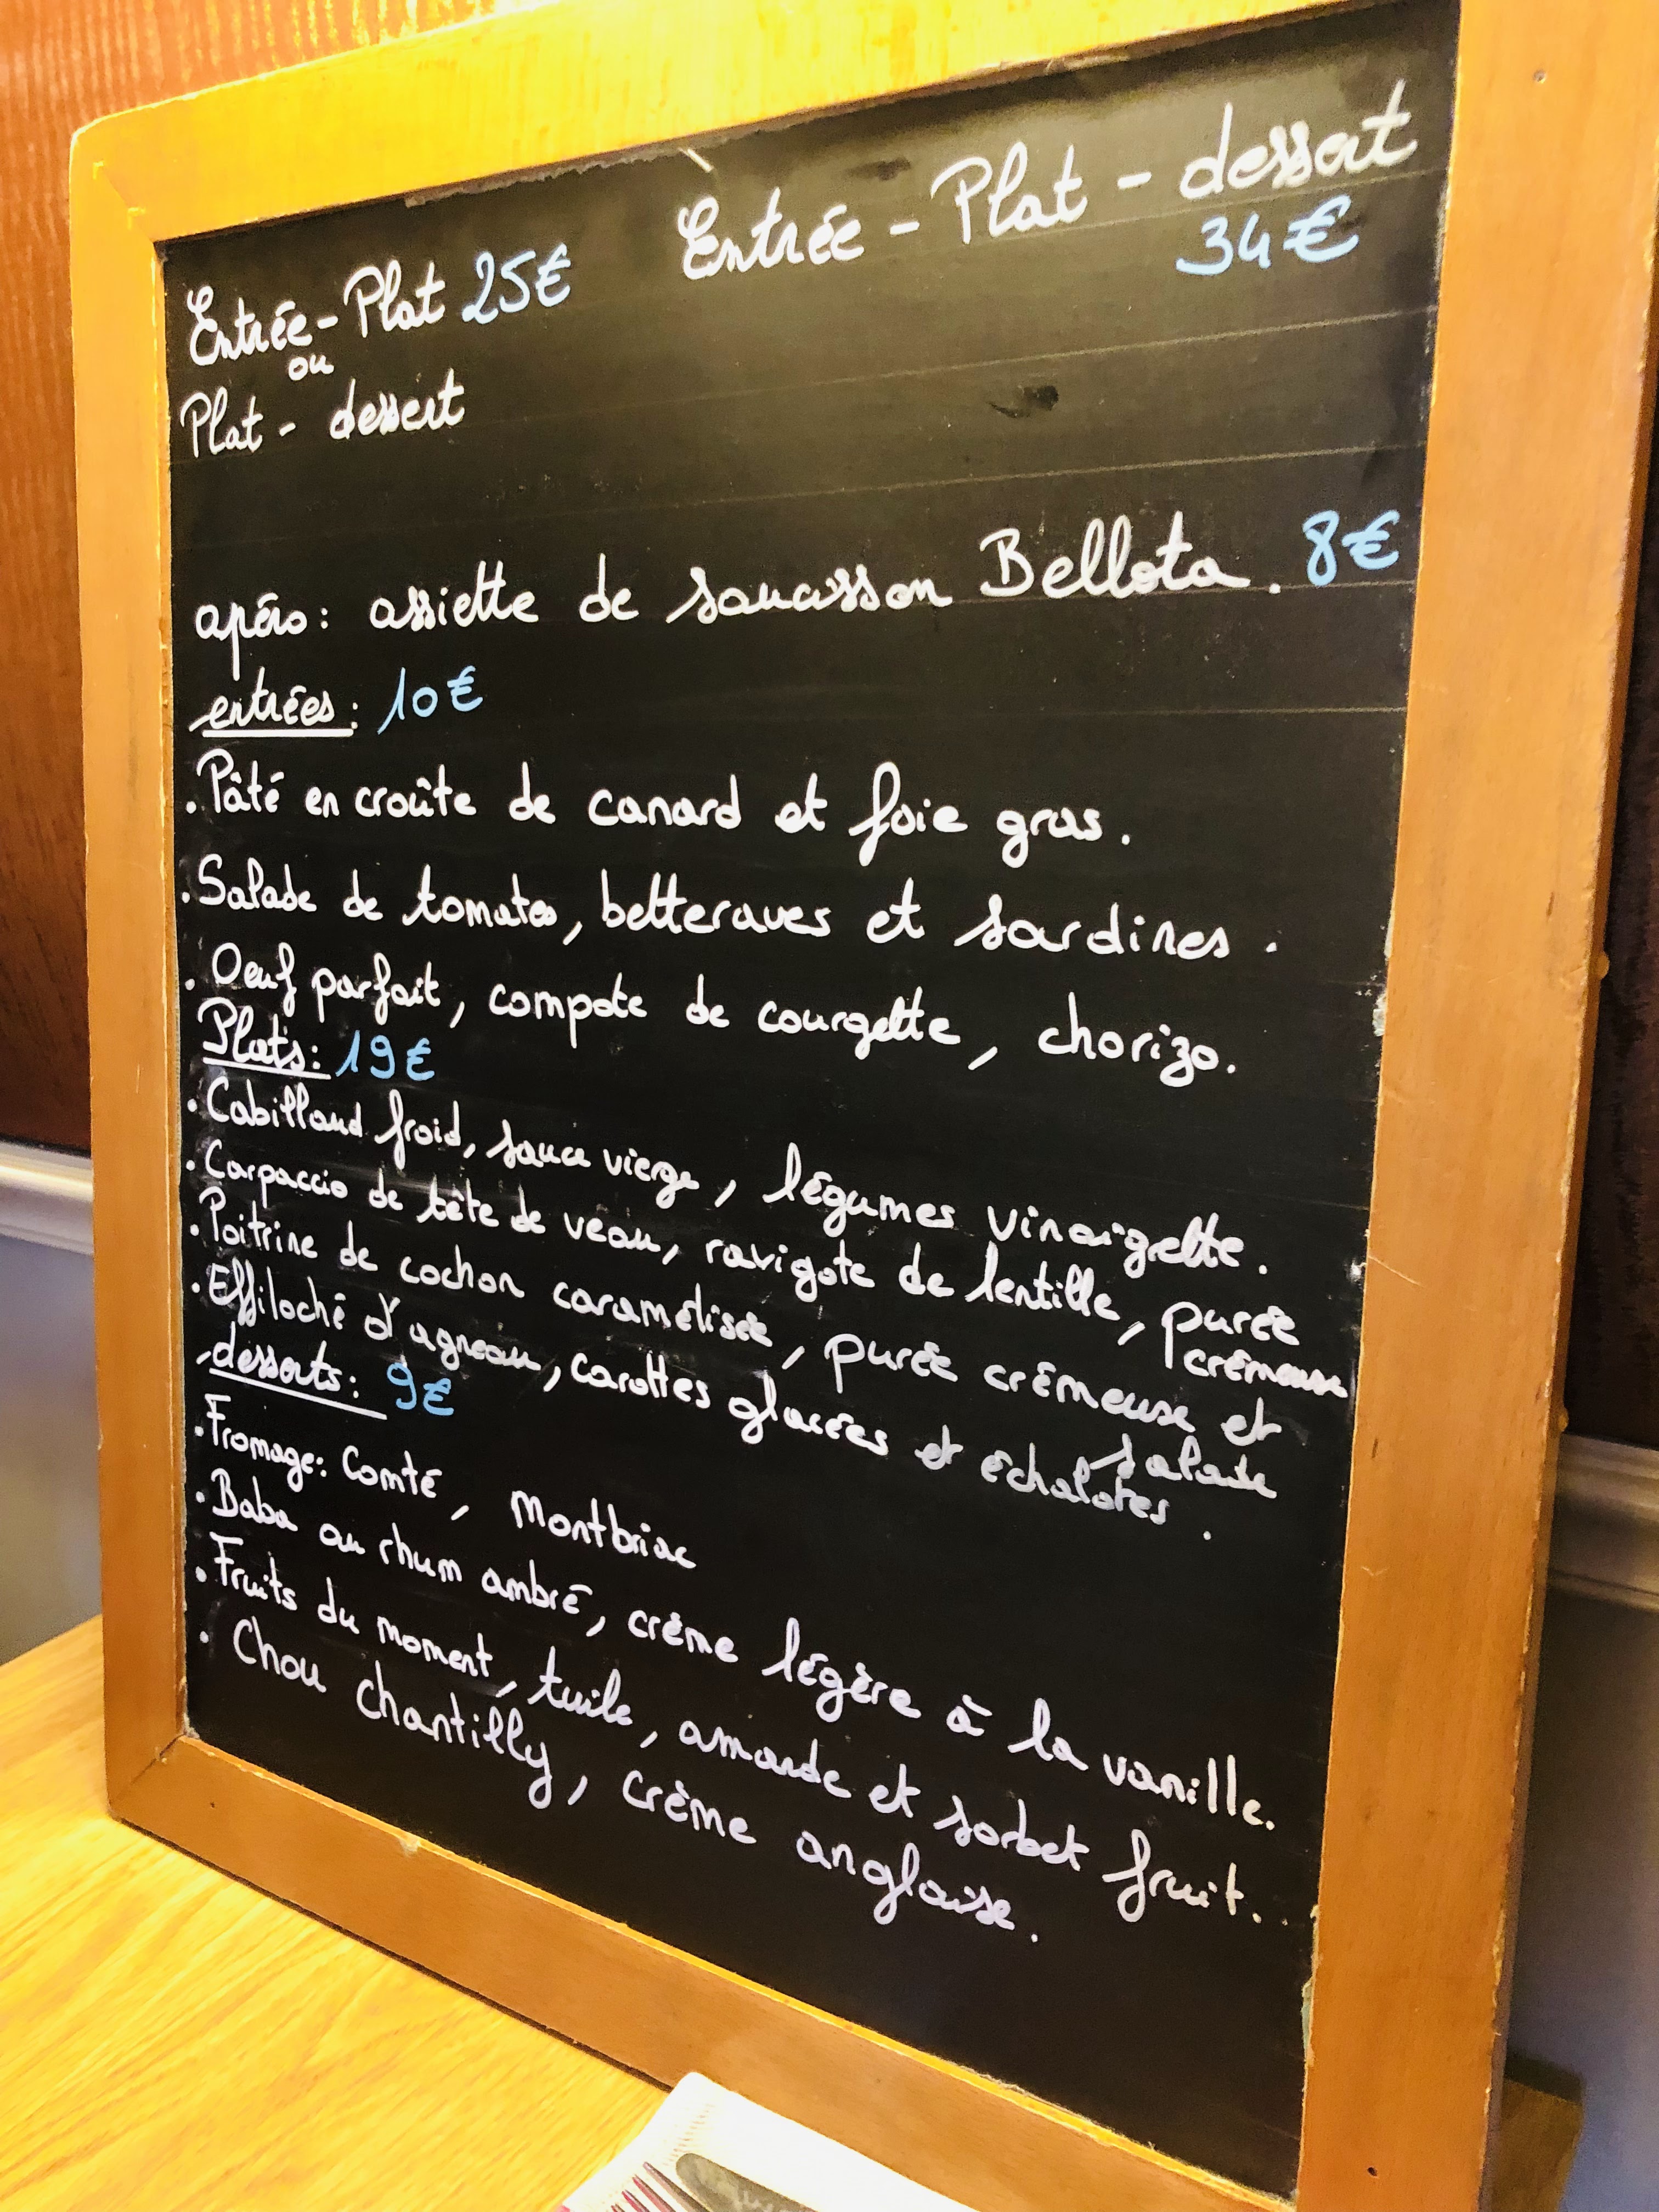 Entrée - Plat - dessert
34€
Entrée - Plat 25€
ou
Plat - dessert
apéro : assiette de saucisson Bellota. 8€
entrées : 10€
. Pâté en croûte de canard et foie gras.
. Salade de tomates, betteraves et sardines.
. Oeuf parfait, compote de courgette, chorizo.
Plats : 19€
. Cabillaud froid, sauce vierge, légumes vinaigrette.
. Carpaccio de tête de veau, ravigote de lentille, purée
crémeuse
. Poitrine de cochon caramélisée, purée crémeuse et
salade
. Effiloché d'agneau, carottes glacées et échalotes.
desserts : 9€
. Fromage : Comté, Montbriac
. Baba au rhum ambré, crème légère à la vanille.
. Fruits du moment, tuile, amande et sorbet fruit.
. Chou chantilly, crème anglaise.